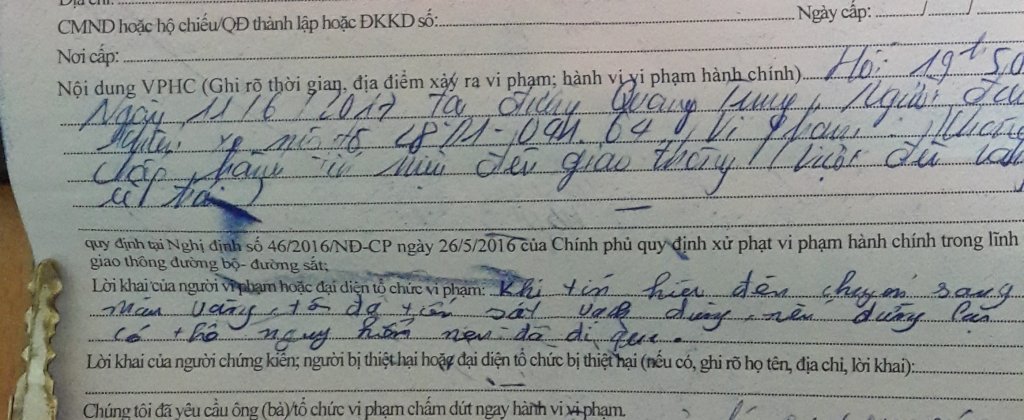 Địa chỉ:
CMND hoặc hộ chiếu/QĐ thành lập hoặc ĐKKD số: Ngày cấp: / /
Nơi cấp:
Nội dung VPHC (Ghi rõ thời gian, địa điểm xảy ra vi phạm; hành vi vi phạm hành chính). Hồi 19h50
Ngày 11/6/2017 Tại đường Quang Trung, Người
xe mô tô 04. Vi phạm: Không
chấp hành tín hiệu đèn giao thông
quy định tại Nghị định số 46/2016/NĐ-CP ngày 26/5/2016 của Chính phủ quy định xử phạt vi phạm hành chính trong lĩnh
giao thông đường bộ- đường sắt;
Lời khai của người vi phạm hoặc đại diện tổ chức vi phạm: Khi tín hiệu đèn chuyển sang
màu vàng, tôi đã tiến sát vạch dừng, nên dừng lại
có thể nguy hiểm nên đã đi qua.
Lời khai của người chứng kiến; người bị thiệt hại hoặc đại diện tổ chức bị thiệt hại (nếu có, ghi rõ họ tên, địa chỉ, lời khai):
Chúng tôi đã yêu cầu ông (bà)/tổ chức vi phạm chấm dứt ngay hành vi vi phạm.